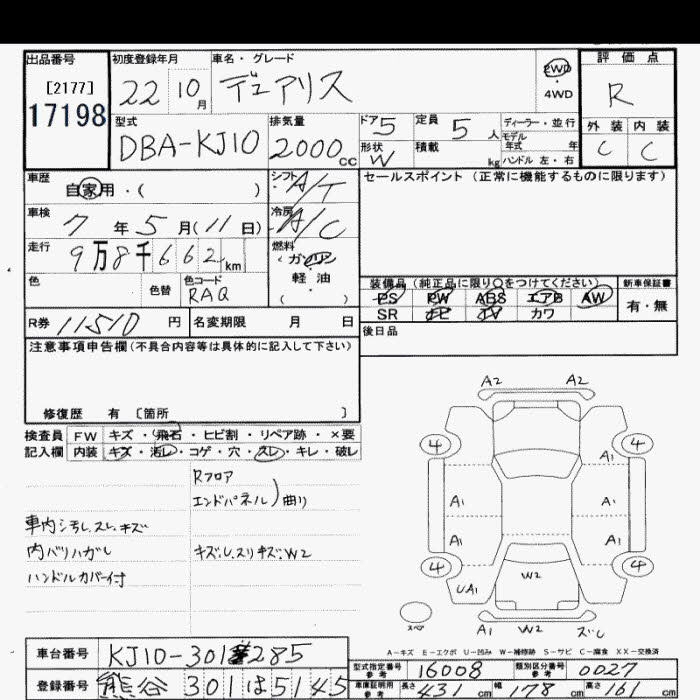 出品番号
[2177]
17198
初度登録年月
22 10月
車名・グレード
デュアリス
2WD
・
4WD
評価点
R
型式
DBA-KJ10
排気量
2000cc
ドア 5
形状 W
定員 5人
積載 kg
ディーラー・並行
モデル年式 年
ハンドル 左・右
外装 内装
C C
車歴
自家用・( )
シフト
A/T
セールスポイント(正常に機能するものに限ります)
車検
7年5月(11日)
冷房
A/C
走行
9万8千662km
燃料
ガソリン
軽・油
( )
色
色替
色コード
RAQ
装備品(純正品に限り○をつけてください)
新車保証書
PS PW ABS エアB AW
SR ナビ TV カワ
有・無
R券 11510円
名変期限 月 日
後日品
注意事項申告欄(不具合内容等は具体的に記入して下さい)
修復歴 有 〔箇所 〕
検査員記入欄
FW キズ・飛石・ヒビ割・リペア跡・×要
内装 キズ・汚レ・コゲ・穴・スレ・キレ・破レ
Rフロア
エンドパネル)曲リ
車内シヨレ、スレ、キズ
内バリハガレ
キズ、レ、スリキズ、W2
ハンドルカバー付
A2 A2
4 4
A1
A1 A1
A1 A1
4 4
UA1 W2
スペア
A1 W2 ズレ
A-キズ E-エクボ U-凹み W-補修跡 S-サビ C-腐食 XX-交換済
車台番号
KJ10-301285
登録番号
熊谷 301 は 5145
型式指定番号 参考
16008
類別区分番号 参考
0027
車庫証明用 参考
長さ 431cm
幅 178cm
高さ 161cm